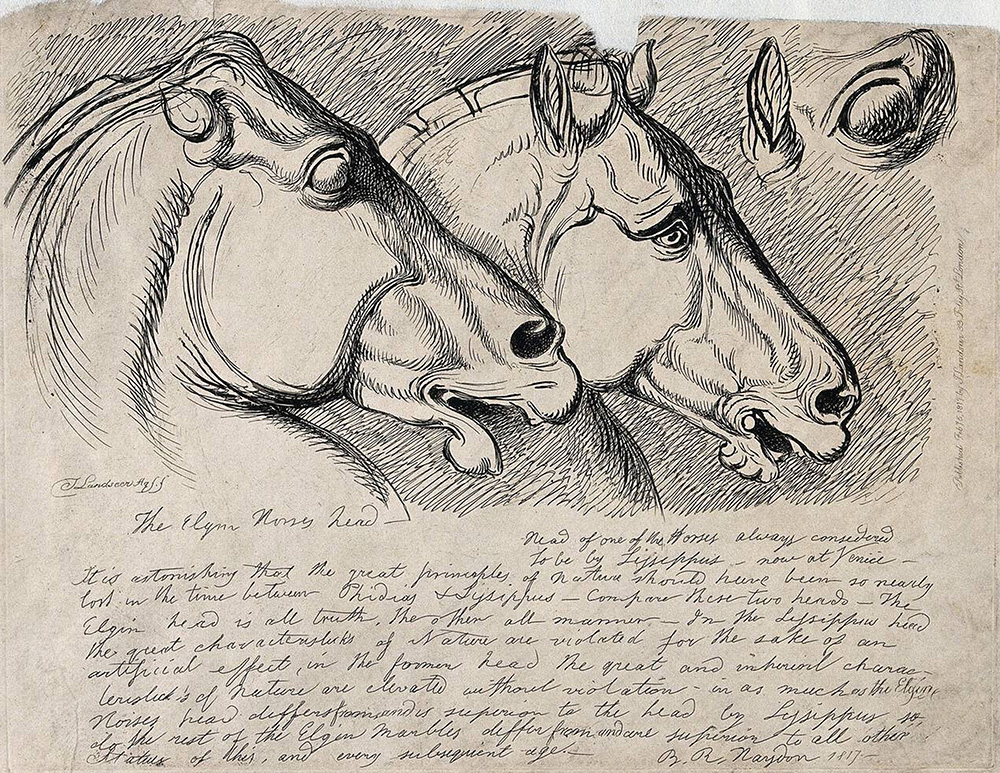 J Landseer Aq. f.
The Elgin Horses head —
Head of one of the Horses always considered
to be by Lysippus — now at Venice —
It is astonishing that the great principles of Nature should have been so nearly
lost in the time between Phidias & Lysippus — Compare these two heads — The
Elgin head is all truth, the other all manner — In the Lysippus head
the great characteristicks of Nature are violated for the sake of an
artificial effect, in the former head the great and inherent charac-
teristick's of Nature are elevated without violation - in as much as the Elgin
Horses head differs from, and is superior to the head by Lysippus so
do the rest of the Elgin Marbles differ from, and are superior to all other
Statues of this, and every subsequent age. —
B. R. Haydon 1817 —
Published Feb
London